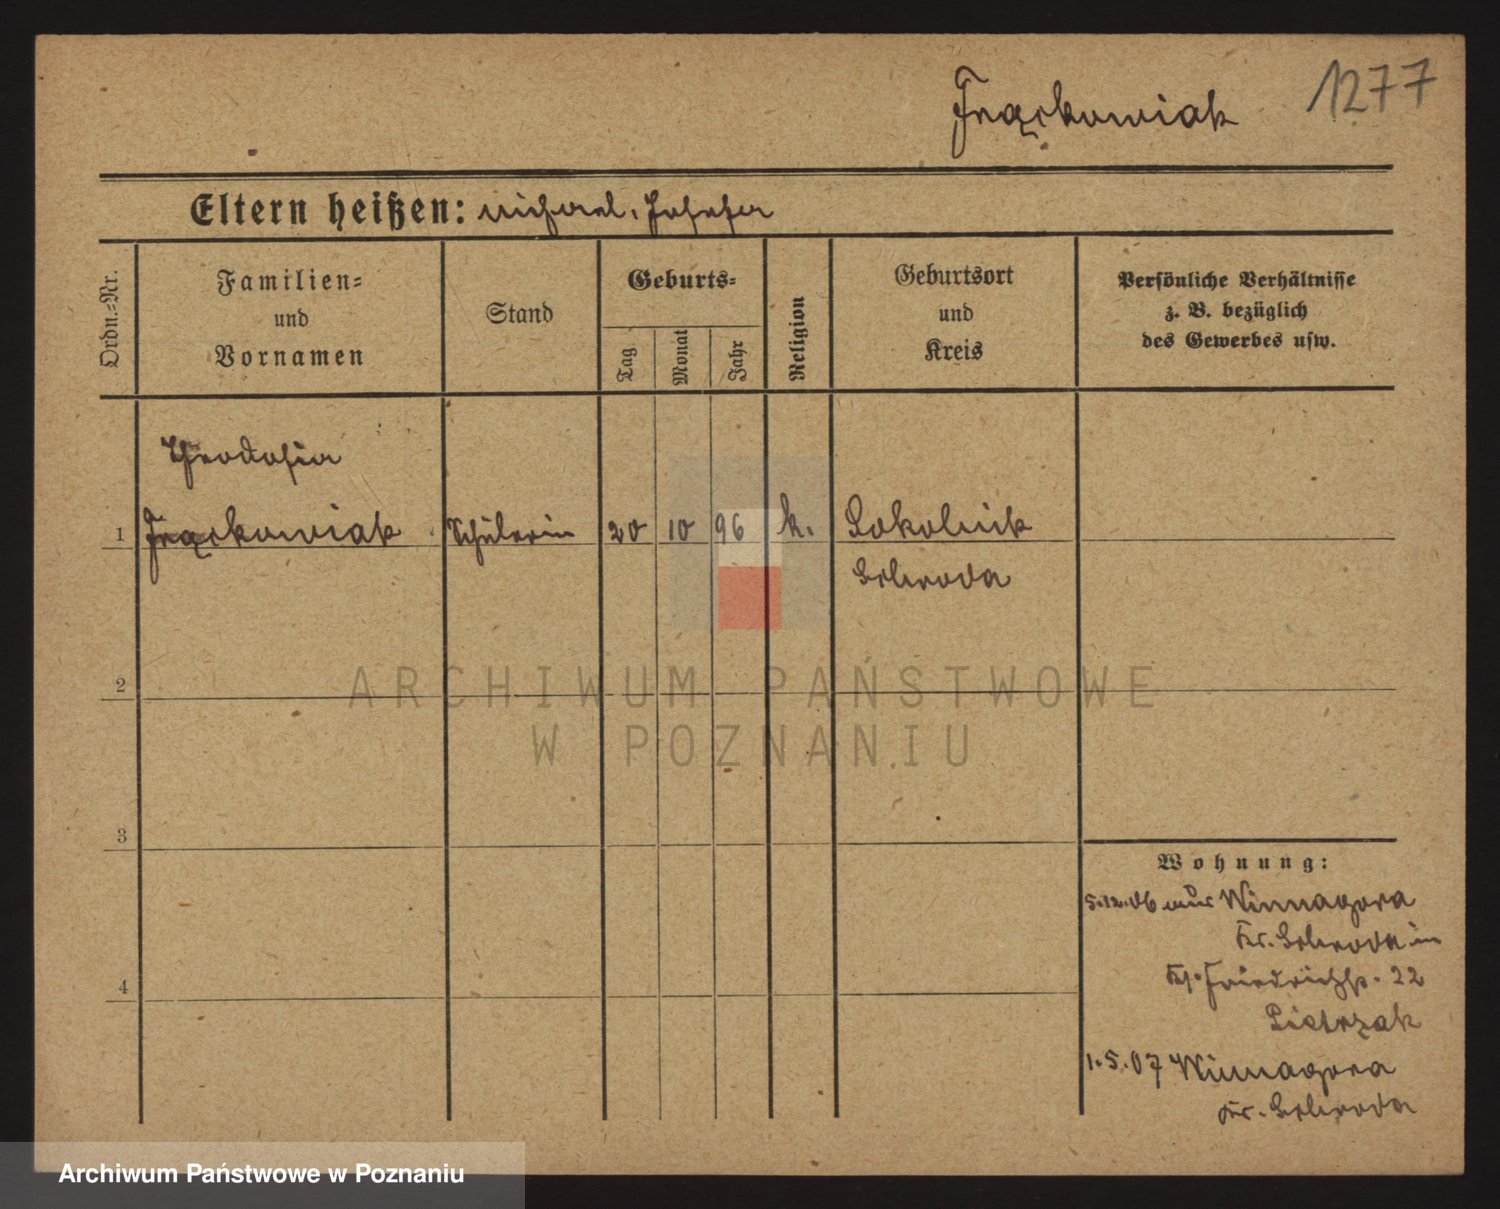 Frąckowiak 1277
Eltern heißen: Michael, Josefa
Ordn.-Nr.
Familien-
und
Vornamen
Stand
Geburts-
Tag
Monat
Jahr
Religion
Geburtsort
und
Kreis
Persönliche Verhältnisse
z. B. bezüglich
des Gewerbes usw.
Theodosia
1 Frąckowiak Schülerin 20 10 96 k. Sokolnik
Schroda
2
ARCHIWUM PAŃSTWOWE
W POZNANIU
3
Wohnung:
5.12.06 aus Winnagora
Kr. Schroda in
Friedrichstr. 22
4
Pietrzak
1.5.07 Winnagora
Kr. Schroda
Archiwum Państwowe w Poznaniu